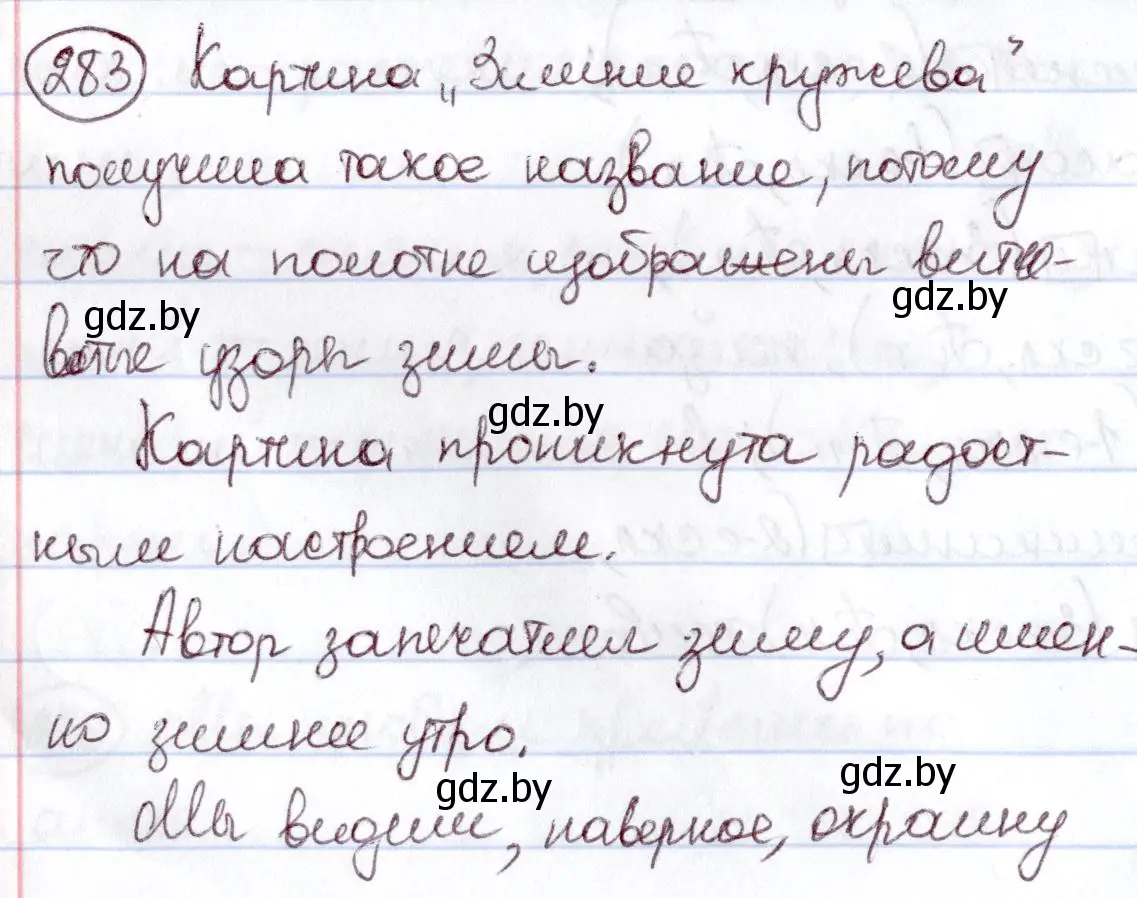 283 Картина „Зимние кружева”
получила такое название, потому
что на полотне изображены витие-
gdz.by
gdz.by
ватые узоры зимы.
gdz.by
Картина проникнута радост-
ным настроением.
Автор запечатлел зиму, а имен-
но зимнее утро.
gdz.by
gdz.by
Мы видим, наверное, окраину